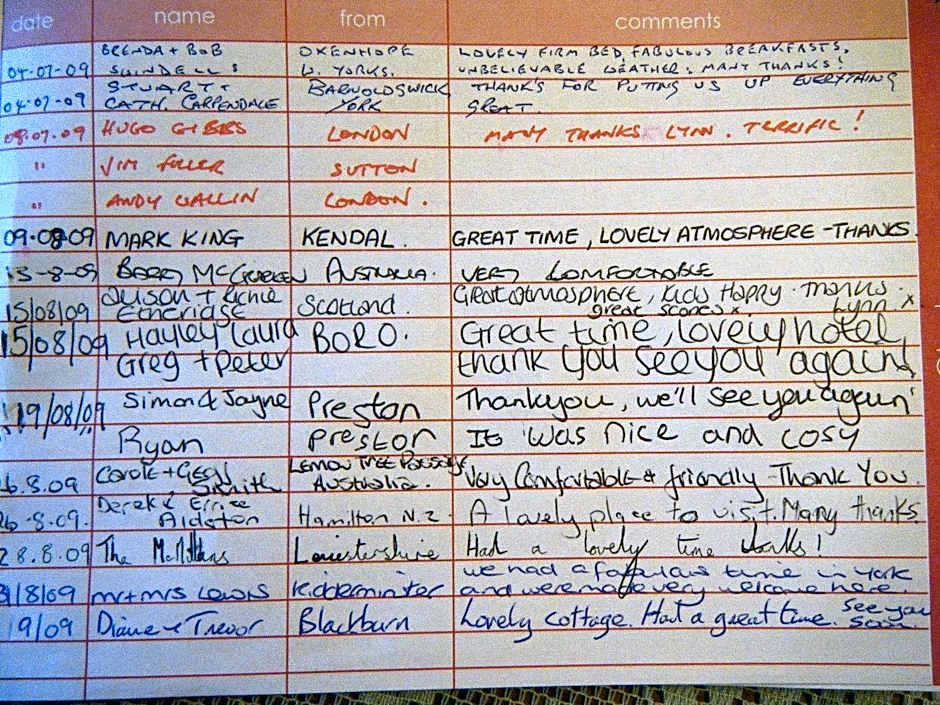 date name from comments
BRENDA + BOB OXENHOPE LOVELY FIRM BED, FABULOUS BREAKFASTS,
04.07.09 SWINDELLS W. YORKS. UNBELIEVABLE WEATHER. MANY THANKS!
STUART + BARNOLDSWICK THANK'S FOR PUTTING US UP EVERYTHING
04.07.09 CATH. CARPENDALE YORK GREAT.
08.07.09 HUGO GIBBS LONDON MANY THANKS LYNN. TERRIFIC!
" JIM FULLER SUTTON
" ANDY WALLIN LONDON.
09.08.09 MARK KING KENDAL. GREAT TIME, LOVELY ATMOSPHERE - THANKS.
13-8-09 BARRY AUSTRALIA. VERY COMFORTABLE
Alison + Richie Great atmosphere, Kids Happy. Thanks
15/08/09 Etheridge Scotland. great scones x. Lynn x
15/08/09 Hayley Laura BORO. Great time, lovely hotel,
Greg + Peter thank you see you again!
19/08/09 Simon & Jayne Preston Thankyou, we'll see you again!
" Ryan Preston It was nice and cosy
Carole + LEMON TREE PASSAGE
6.8.09 Smith AUSTRALIA. Very Comfortable & friendly - Thank You.
Derek &
26-8.09. Hamilton N.Z. A lovely place to visit. Many thanks.
28.8.09 The Leicestershire Had a lovely time thanks!
we had a fabulous time in York
31/8/09 mr + mrs Lewis Kidderminter and were made very welcome here.
19/09 Diane + Trevor Blackburn Lovely cottage. Had a great time. See you
soon.